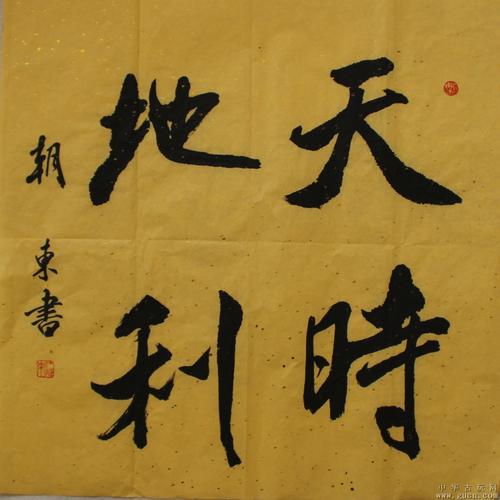 天時
地利
朝東書
中华古玩网
www.gucn.com